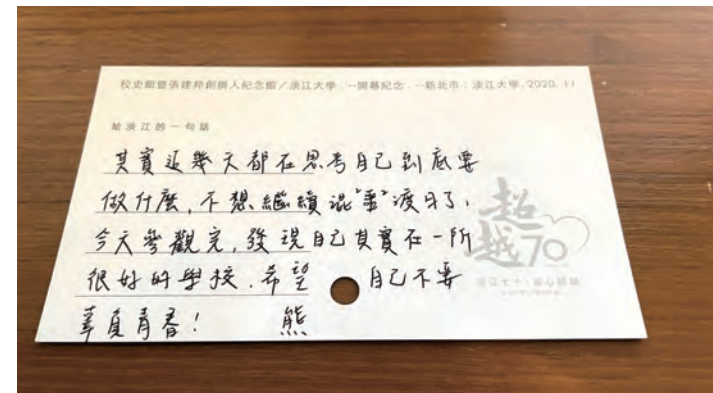 校史館暨張建邦創辦人紀念館/淡江大學. --開幕紀念. --新北市：淡江大學, 2020. 11
給淡江的一句話
其實這幾天都在思考自己到底要
做什麼，不想繼續混"噩"渡日了，
今天參觀完，發現自己其實在一所
很好的學校．希望 自己不要
辜負青春！ 熊
超越70
淡江七十．